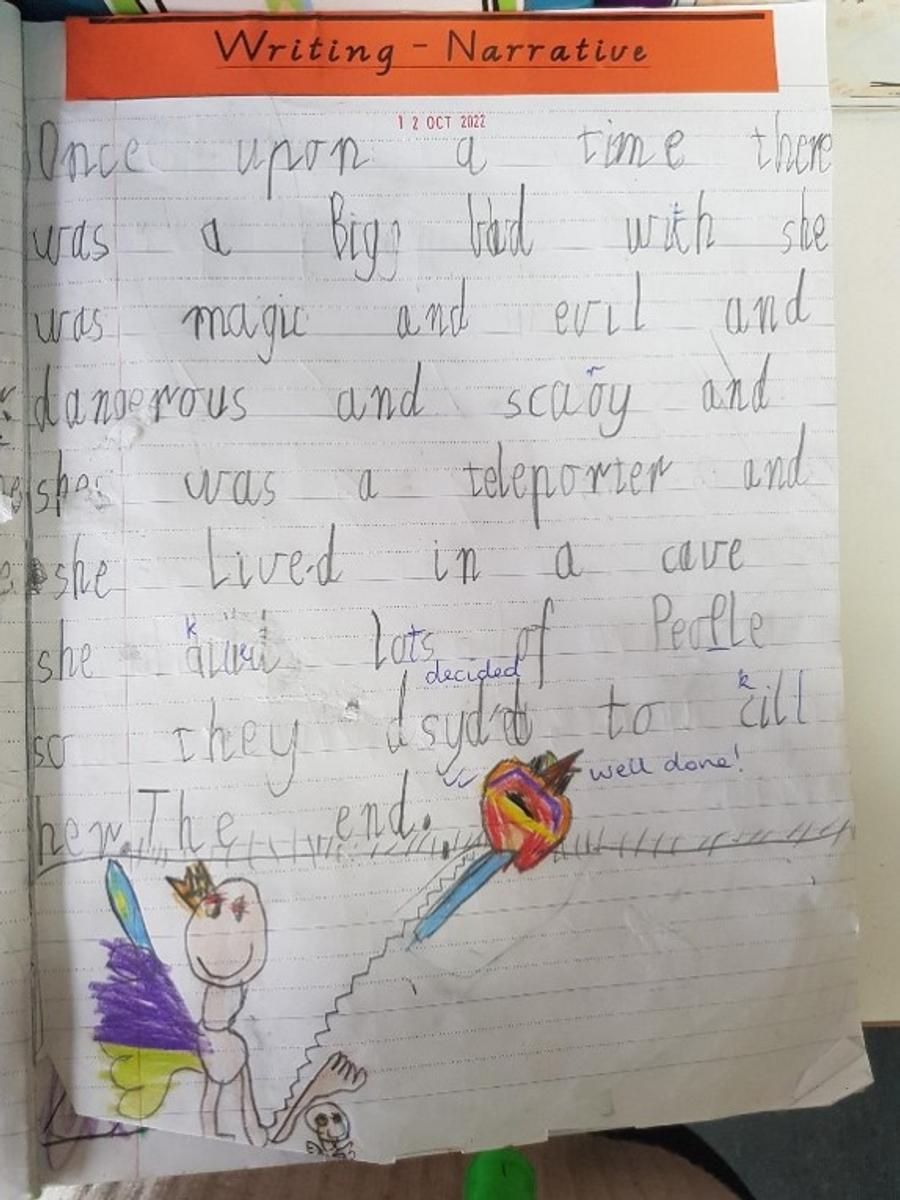 Writing - Narrative
12 OCT 2022
Once upon a time there
was a Big bad with she
t
was magic and evil and
dangerous and scary and
r
she was a teleporter and
she Lived in a cave
she lots of People
k
so they dsyd to cill
decided
k
her. The end.
well done!